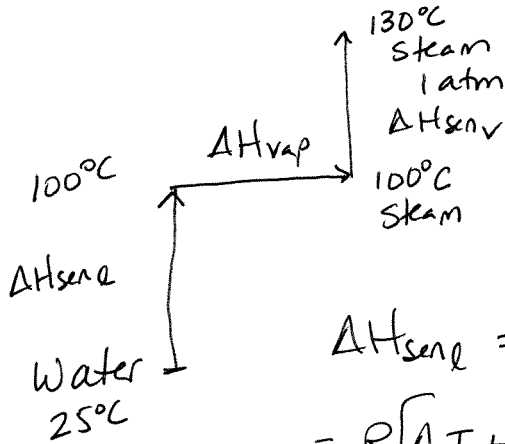 130°C
steam
1 atm
ΔHsenv
ΔHvap
100°C
100°C
Steam
ΔHsenl
Water
25°C
ΔHsenl =
= R[AT+